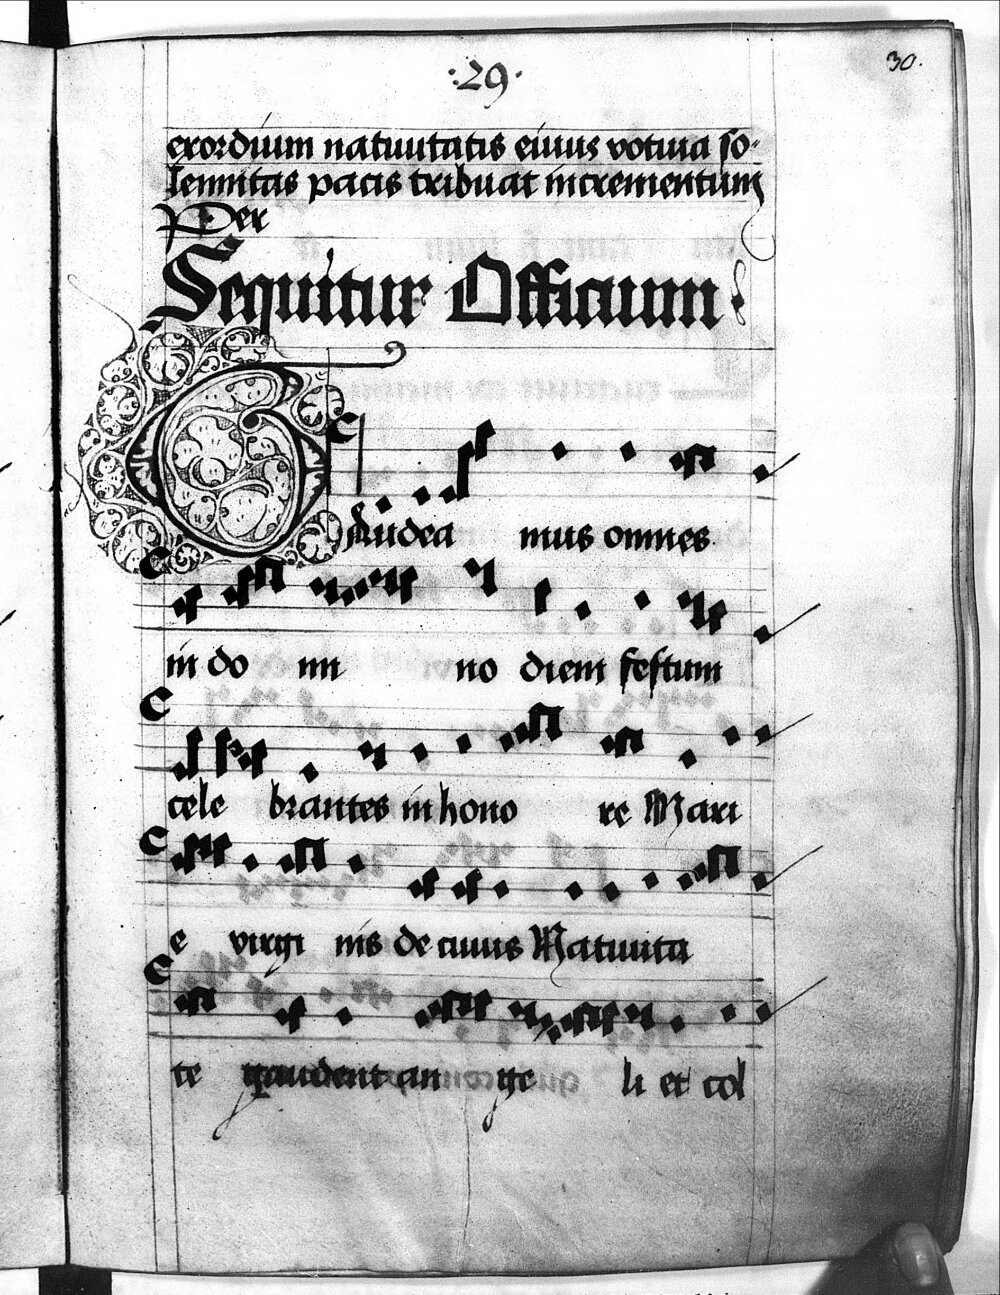 30.
·29·
exordium natiuitatis eiuus votiua so-
lemnitas pacis tribuat incrementum
Per
Sequitur Officium
Gaudea mus omnes
in do mi no diem festum
cele brantes in hono re Mari
e virgi nis de cuius Natiuita
te gaudent an ge li et col